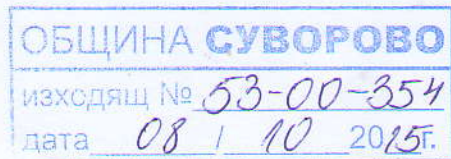 ОБЩИНА СУВОРОВО
изходящ № 53-00-354
дата 08 / 10 2015г.